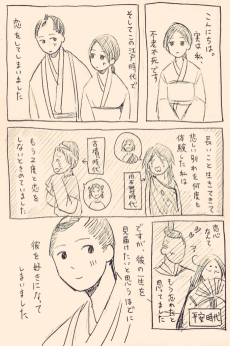 こんにちは。
実は私
不老不死です
そしてこの江戸時代で
恋をしてしまいました
長いこと生きてきて
悲しい別れを何度も
体験した私は
旧石器時代
古墳時代
もう2度と恋を
しないときめていました
恋心
なんて
もう忘れたと
思ってました
平安時代
ですが、彼の一生を
見届けたいと思うほどに
彼を好きになって
しまいました